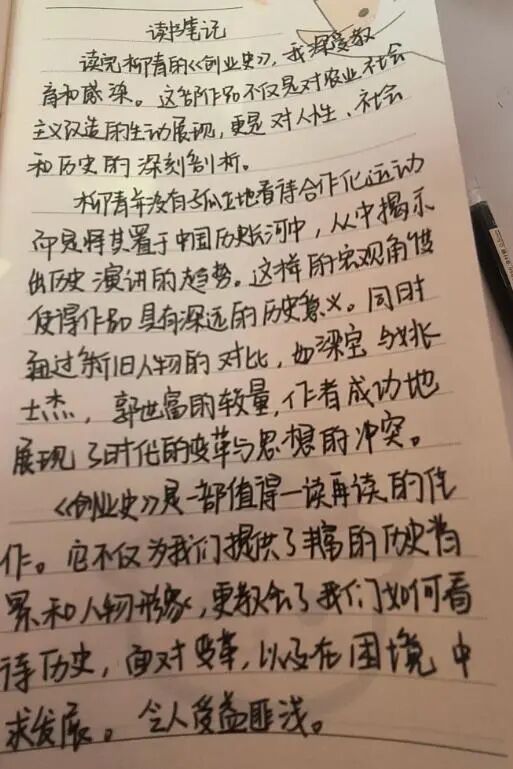 读书笔记
读完柳青的《创业史》,我深受教
育和感染。这部作品不仅是对农业社会
主义改造的生动展现,更是对人性、社会
和历史的深刻剖析。
柳青并没有孤立地看待合作化运动
而是将其置于中国历史长河中,从中揭示
出历史演讲的趋势。这样的宏观角度
使得作品具有深远的历史意义。同时
通过新旧人物的对比,如梁宝与姚
士杰,郭世富的较量,作者成功地
展现了时代的变革与思想的冲突。
《创业史》是一部值得一读再读的佳
作。它不仅为我们提供了丰富的历史背
景和人物形象,更教会了我们如何看
待历史,面对变革,以及在困境中
求发展。令人受益匪浅。